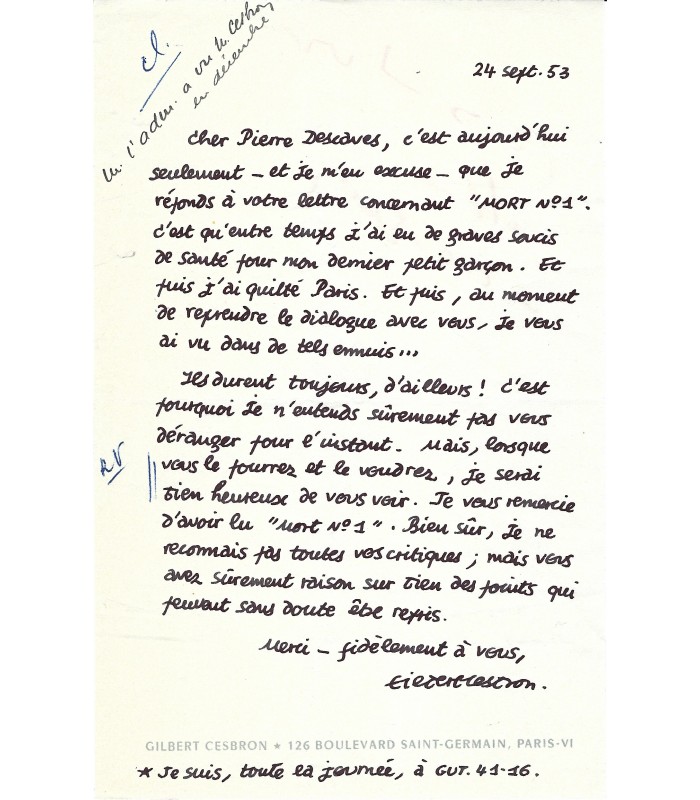 cl.
M. l'adm. a vu M. Cesbron
en décembre
24 sept. 53
Cher Pierre Descaves, c'est aujourd'hui
seulement – et je m'en excuse – que je
réponds à votre lettre concernant "MORT Nº1".
C'est qu'entre temps j'ai eu de graves soucis
de santé pour mon dernier petit garçon. Et
puis j'ai quitté Paris. Et puis, au moment
de reprendre le dialogue avec vous, je vous
ai vu dans de tels ennuis...
Ils durent toujours, d'ailleurs ! C'est
pourquoi je n'entends sûrement pas vous
déranger pour l'instant. Mais, lorsque
RV
vous le pourrez et le voudrez, je serai
bien heureux de vous voir. Je vous remercie
d'avoir lu "Mort Nº1". Bien sûr, je ne
reconnais pas toutes vos critiques ; mais vous
avez sûrement raison sur bien des points qui
peuvent sans doute être repris.
Merci – fidèlement à vous,
Gilbert Cesbron.
GILBERT CESBRON ★ 126 BOULEVARD SAINT-GERMAIN, PARIS-VI
★ Je suis, toute la journée, à GUT. 41-16.